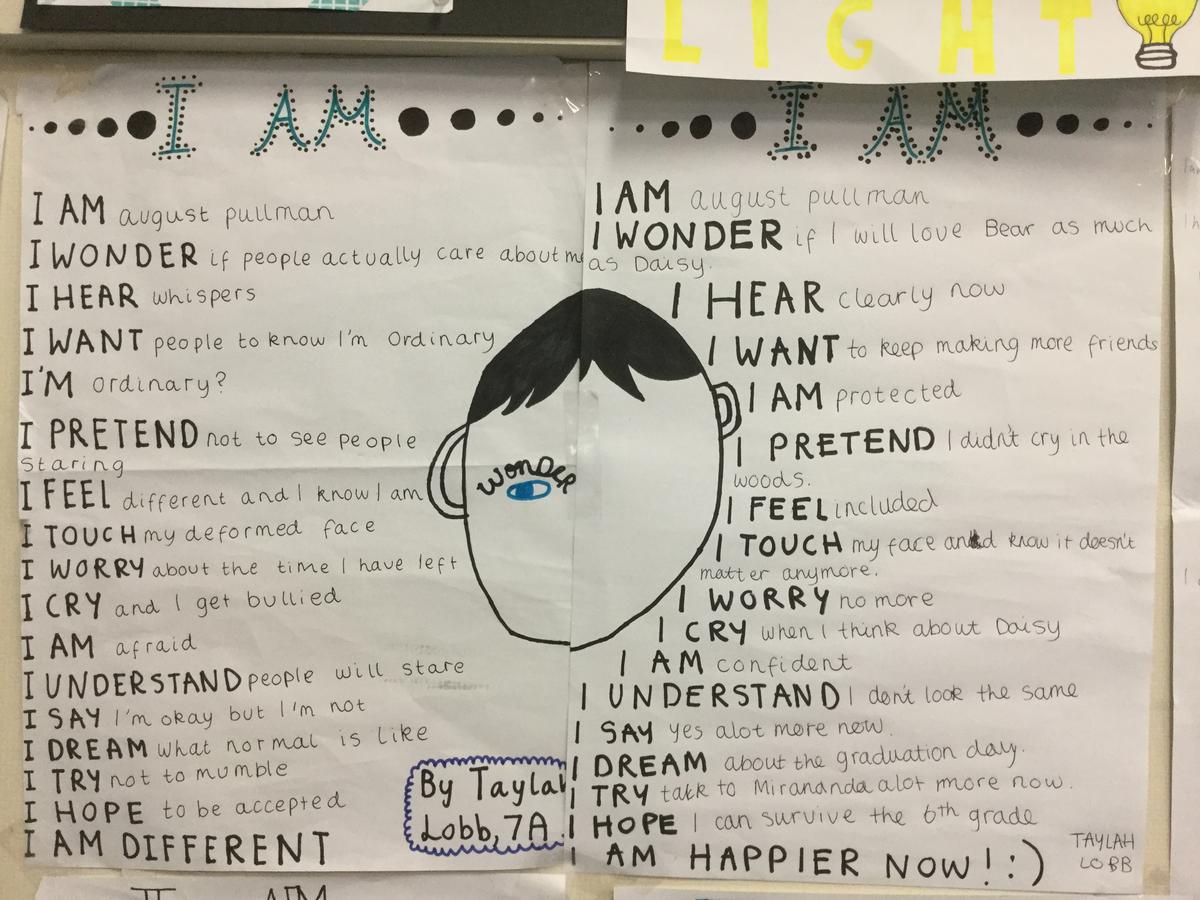 LIGHT
I AM
I AM august pullman
I WONDER if people actually care about me
I HEAR whispers
I WANT people to know I'm Ordinary
I'M ordinary?
I PRETEND not to see people
staring
I FEEL different and I know I am
I TOUCH my deformed face
I WORRY about the time I have left
I CRY and I get bullied
I AM afraid
I UNDERSTAND people will stare
I SAY I'm okay but I'm not
I DREAM what normal is like
I TRY not to mumble
I HOPE to be accepted
I AM DIFFERENT
wonder
By Taylah
Lobb, 7A
I AM
I AM august pullman
I WONDER if I will love Bear as much
as Daisy.
I HEAR clearly now
I WANT to keep making more friends
I AM protected
I PRETEND I didn't cry in the
woods.
I FEEL included
I TOUCH my face and know it doesn't
matter anymore.
I WORRY no more
I CRY when I think about Daisy
I AM confident
I UNDERSTAND I don't look the same
I SAY yes alot more now.
I DREAM about the graduation day.
I TRY talk to Mirananda alot more now.
I HOPE I can survive the 6th grade
I AM HAPPIER NOW! :)
TAYLAH
LOBB
I AM